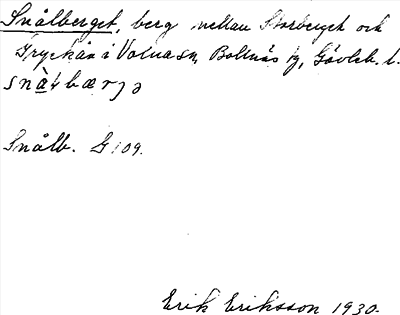 Snålberget, berg mellan Storberget och
Gryckån i Voxna sn, Bollnäs tg, Gävleb. l.
Snålb. G 109.
Erik Eriksson 1930.